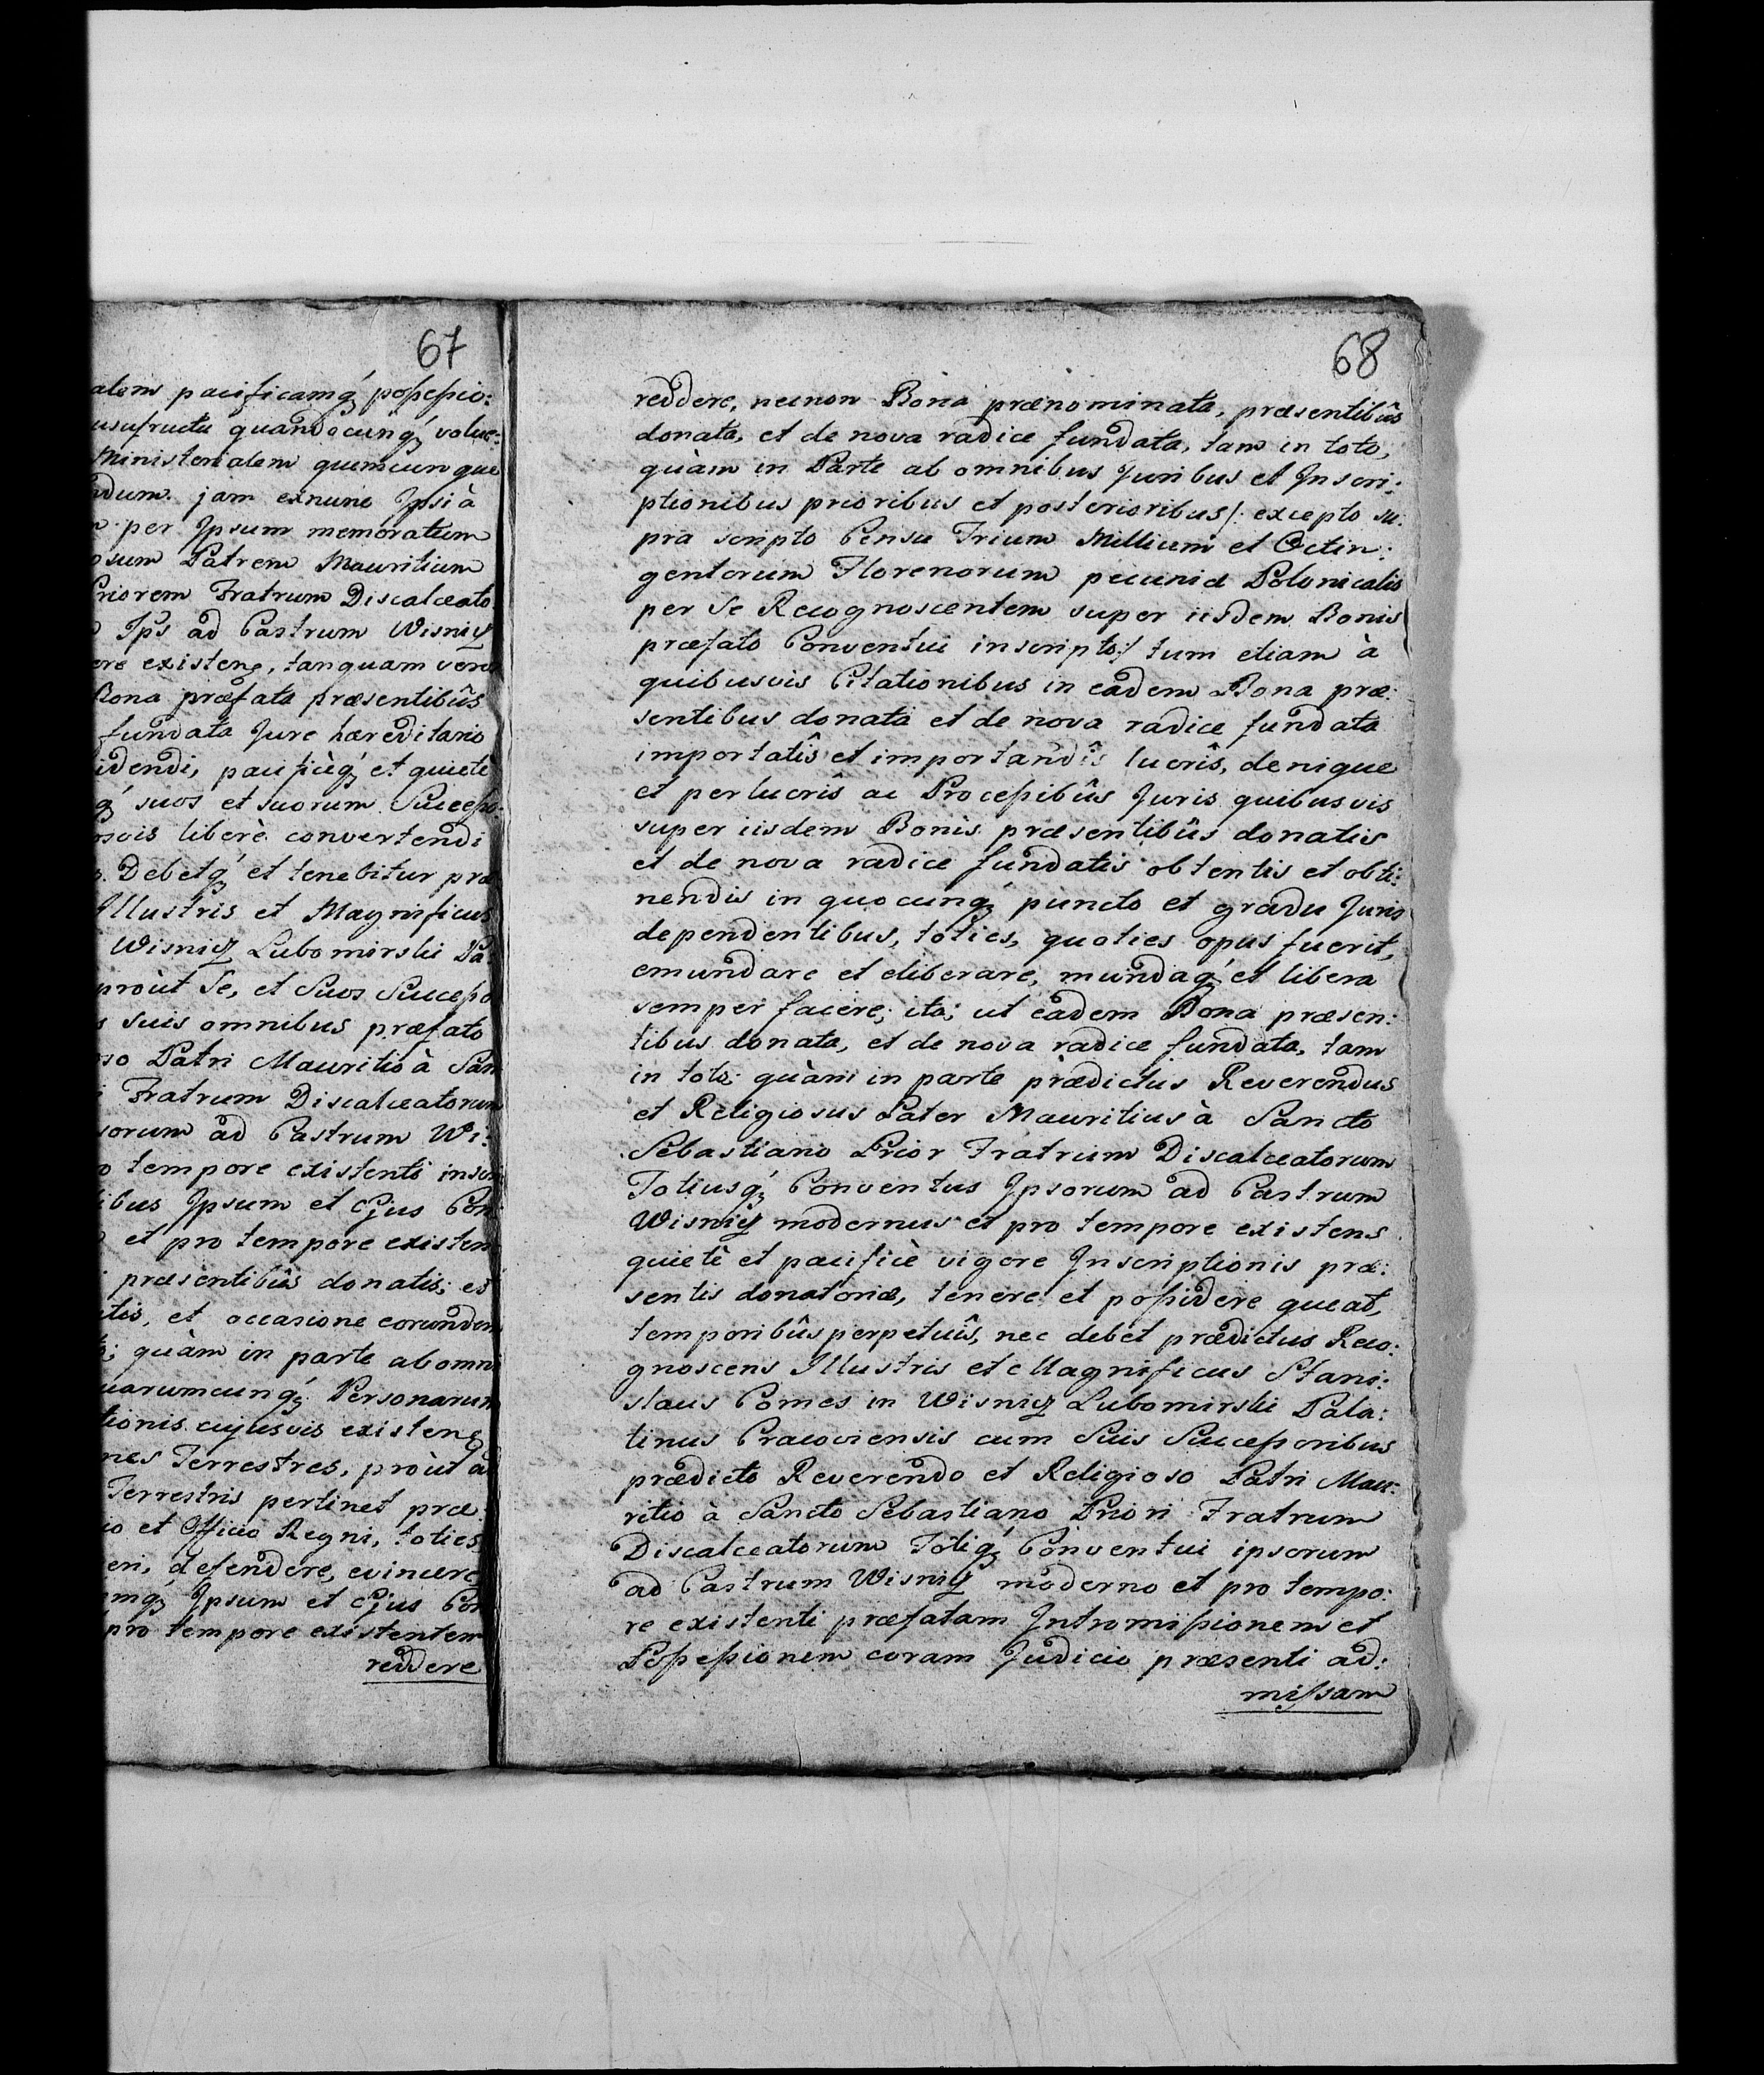 67
alem pacificamq́ꝫ possessio:
usufructu quandocunq́ꝫ volue:
Ministerialem quemcunque
dum. jam exnunc Ipsi à
per Ipsum memoratum
osum Patrem Mauritium
Priorem Fratrum Discalceato
Ips ad Castrum Wisnicz
ore existens, tanquam vero
Bona præfata præsentibûs
fundata Jure hæreditario
idendi, pacificèq́ꝫ et quietè
q́ꝫ suos et suorum Successo
osvis liberè convertendi
Debetq́ꝫ et tenebitur præ
Illustris et Magnificus
Wisnicz Lubomirski Pa:
proùt Se, et Suos Successo
suis omnibus præfato
so Patri Mauritio à San
Fratrum Discalceatorum
sorum ad Castrum Wi:
tempore existenti inscri
ibus Ipsum et Ejus Con
et pro tempore existen
præsentibûs donatis; et
atis, et occasione eorundem
quàm in parte ab omni
uarumcunq́ꝫ Personarum
tionis cujusvis existen
nes Terrestres, proùt ad
Terrestris pertinet præ:
io et Officio Regni, toties
eri, defendere, evincere
mq́ꝫ Ipsum et Ejus Con
pro tempore existentem
reddere
68
reddere, necnon Bona prænominata, præsentibûs
donata, et de nova radice fundata, tam in toto,
quàm in Parte ab omnibus Juribus et Inscri:
ptionibus prioribus et posterioribus /: excepto su:
pra scripto Censu Trium Millium et Octin:
gentorum Florenorum pecuniæ Polonicalis
per Se Recognoscentem super iisdem Bonis
præfato Conventui inscripto :/ tum etiam à
quibusvis Citationibus in eadem Bona præ:
sentibus donata et de nova radice fundata
importatîs et importandîs lucrîs, denique
et perlucrîs ac Processibûs Juris quibusvis
super iisdem Bonis præsentibûs donatis
et de nova radice fundatis obtentis et obti:
nendis in quocunq́ꝫ puncto et gradu Juris
dependentibus, toties, quoties opus fuerit,
emundare et eliberare, mundaq́ꝫ et libera
semper facere; ita; ut eadem Bona præsen:
tibus donata, et de nova radice fundata, tam
in toto; quàm in parte prædictus Reverendus
et Religiosus Pater Mauritius à Sancto
Sebastiano Prior Fratrum Discalceatorum
Totiusq́ꝫ Conventus Ipsorum ad Castrum
Wisnicz modernus et pro tempore existens
quietè et pacificè vigore Inscriptionis præ:
sentis donatoriæ, tenere et possidere queat,
temporibûs perpetuîs, nec debet prædictus Reco:
gnoscens Illustris et Magnificus Stani:
slaus Comes in Wisnicz Lubomirski Pala:
tinus Cracoviensis cum Suis Successoribus
prædicto Reverendo et Religioso Patri Mau:
ritio à Sancto Sebastiano Priori Fratrum
Discalceatorum Totiq́ꝫ Conventui ipsorum
ad Castrum Wisnicz moderno et pro tempo:
re existenti præfatam Intromissionem et
Possessionem coram Judicio præsenti ad:
missam